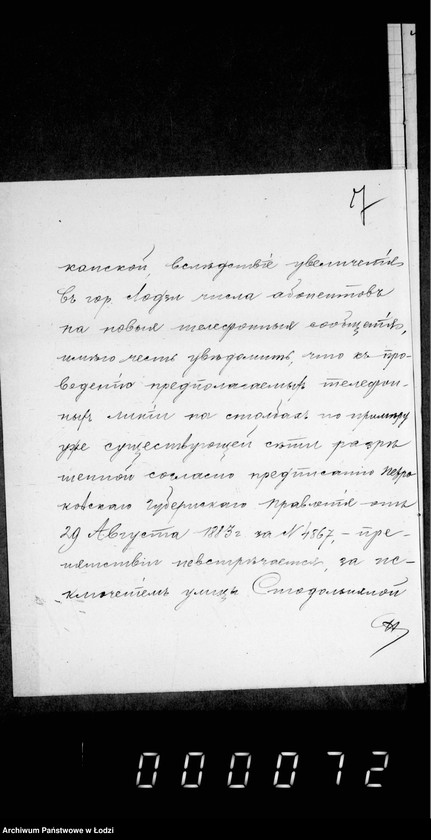 7
канской, вследствіе увеличенія
въ гор. Лодзи числа абонентовъ
на новыя телефонныя сообщенія,
имѣю честь увѣдомить, что къ про-
веденію предполагаемыхъ телефон-
ныхъ линій на столбахъ по примѣру
уже существующей сѣти разрѣ-
шенной согласно предписанію Петро-
ковскаго Губернскаго Правленія отъ
29 Августа 1883 г. за № 4867, – пре-
пятствій невстрѣчается, за ис-
ключеніемъ улицы Стодольняной
000072
Archiwum Państwowe w Łodzi